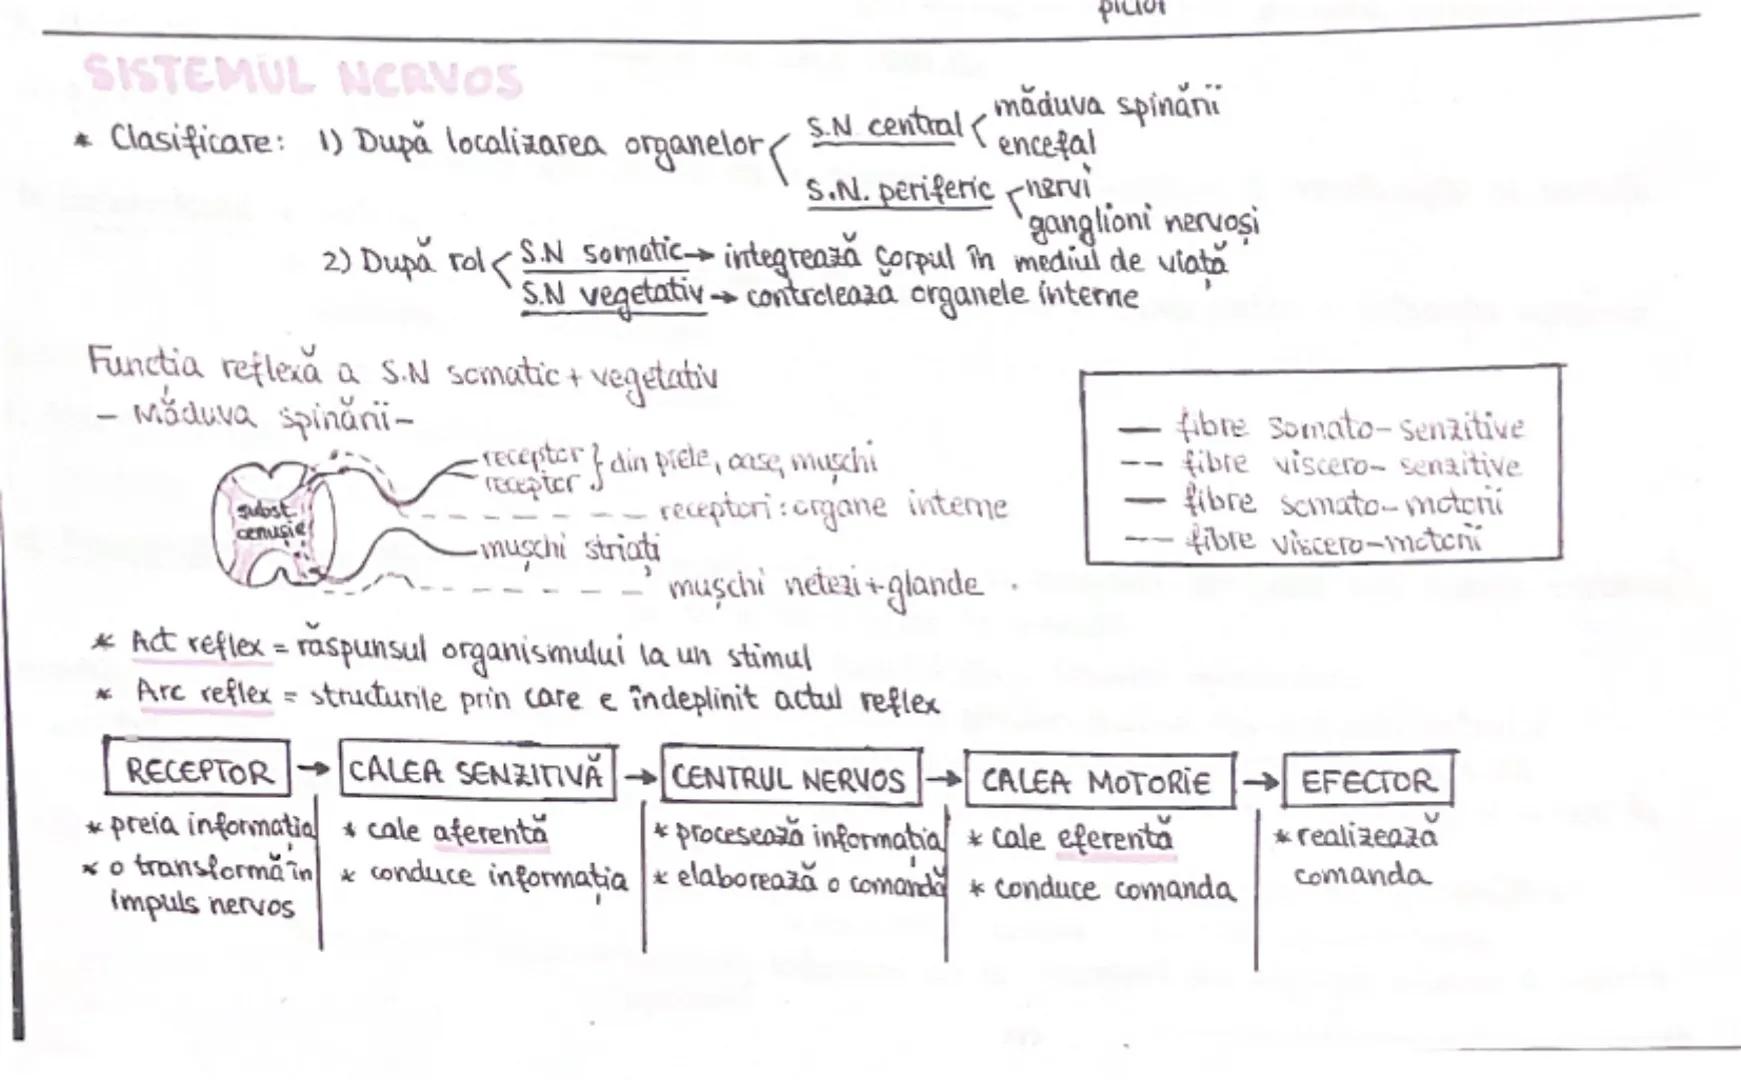 picior
SISTEMUL NERVOS
* Clasificare: 1) După localizarea organelor
S.N. central
măduva spinării
encefal
S.N. periferic
nervi
ganglioni nervoși
2) După rol
S.N somatic → integrează corpul în mediul de viață
S.N vegetativ → controlează organele interne
Funcția reflexă a S.N somatic + vegetativ
- Măduva spinării -
receptor } din piele, oase, mușchi
receptor
receptori: organe interne
subst. cenușie
mușchi striați
mușchi netezi + glande
— fibre somato-senzitive
-- fibre viscero-senzitive
— fibre somato-motorii
-- fibre viscero-motorii
* Act reflex = răspunsul organismului la un stimul
* Arc reflex = structurile prin care e îndeplinit actul reflex
RECEPTOR → CALEA SENZITIVĂ → CENTRUL NERVOS → CALEA MOTORIE → EFECTOR
* preia informația
* o transformă în
impuls nervos
* cale aferentă
* conduce informația
* procesează informația
* elaborează o comandă
* cale eferentă
* conduce comanda
* realizează
comanda